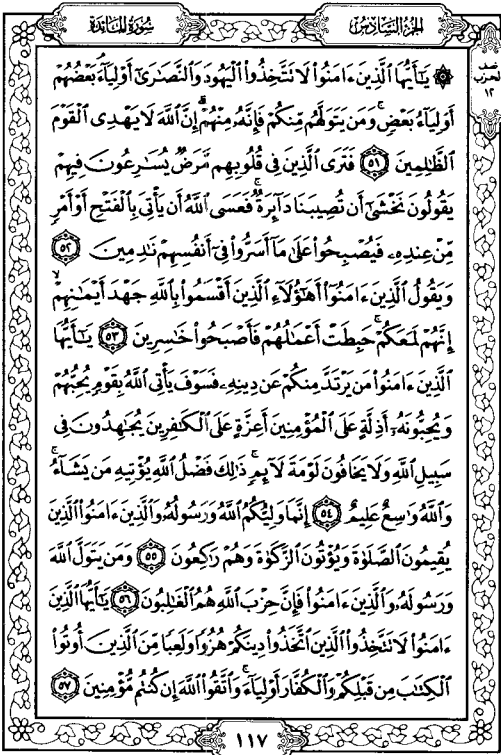 سُورَةُ المَائِدَةِ
الجُزْءُ السَّادِسُ
نصف
الحزب
١٢
۞ يَٰٓأَيُّهَا ٱلَّذِينَ ءَامَنُوا۟ لَا تَتَّخِذُوا۟ ٱلْيَهُودَ وَٱلنَّصَٰرَىٰٓ أَوْلِيَآءَ ۘ بَعْضُهُمْ
أَوْلِيَآءُ بَعْضٍ ۚ وَمَن يَتَوَلَّهُم مِّنكُمْ فَإِنَّهُۥ مِنْهُمْ ۗ إِنَّ ٱللَّهَ لَا يَهْدِى ٱلْقَوْمَ
ٱلظَّٰلِمِينَ ٥١ فَتَرَى ٱلَّذِينَ فِى قُلُوبِهِم مَّرَضٌ يُسَٰرِعُونَ فِيهِمْ
يَقُولُونَ نَخْشَىٰٓ أَن تُصِيبَنَا دَآئِرَةٌ ۚ فَعَسَى ٱللَّهُ أَن يَأْتِىَ بِٱلْفَتْحِ أَوْ أَمْرٍ
مِّنْ عِندِهِۦ فَيُصْبِحُوا۟ عَلَىٰ مَآ أَسَرُّوا۟ فِىٓ أَنفُسِهِمْ نَٰدِمِينَ ٥٢
وَيَقُولُ ٱلَّذِينَ ءَامَنُوٓا۟ أَهَٰٓؤُلَآءِ ٱلَّذِينَ أَقْسَمُوا۟ بِٱللَّهِ جَهْدَ أَيْمَٰنِهِمْ ۙ
إِنَّهُمْ لَمَعَكُمْ ۚ حَبِطَتْ أَعْمَٰلُهُمْ فَأَصْبَحُوا۟ خَٰسِرِينَ ٥٣ يَٰٓأَيُّهَا
ٱلَّذِينَ ءَامَنُوا۟ مَن يَرْتَدَّ مِنكُمْ عَن دِينِهِۦ فَسَوْفَ يَأْتِى ٱللَّهُ بِقَوْمٍ يُحِبُّهُمْ
وَيُحِبُّونَهُۥٓ أَذِلَّةٍ عَلَى ٱلْمُؤْمِنِينَ أَعِزَّةٍ عَلَى ٱلْكَٰفِرِينَ يُجَٰهِدُونَ فِى
سَبِيلِ ٱللَّهِ وَلَا يَخَافُونَ لَوْمَةَ لَآئِمٍ ۚ ذَٰلِكَ فَضْلُ ٱللَّهِ يُؤْتِيهِ مَن يَشَآءُ ۚ
وَٱللَّهُ وَٰسِعٌ عَلِيمٌ ٥٤ إِنَّمَا وَلِيُّكُمُ ٱللَّهُ وَرَسُولُهُۥ وَٱلَّذِينَ ءَامَنُوا۟ ٱلَّذِينَ
يُقِيمُونَ ٱلصَّلَوٰةَ وَيُؤْتُونَ ٱلزَّكَوٰةَ وَهُمْ رَٰكِعُونَ ٥٥ وَمَن يَتَوَلَّ ٱللَّهَ
وَرَسُولَهُۥ وَٱلَّذِينَ ءَامَنُوا۟ فَإِنَّ حِزْبَ ٱللَّهِ هُمُ ٱلْغَٰلِبُونَ ٥٦ يَٰٓأَيُّهَا ٱلَّذِينَ
ءَامَنُوا۟ لَا تَتَّخِذُوا۟ ٱلَّذِينَ ٱتَّخَذُوا۟ دِينَكُمْ هُزُوًا وَلَعِبًا مِّنَ ٱلَّذِينَ أُوتُوا۟
ٱلْكِتَٰبَ مِن قَبْلِكُمْ وَٱلْكُفَّارَ أَوْلِيَآءَ ۚ وَٱتَّقُوا۟ ٱللَّهَ إِن كُنتُم مُّؤْمِنِينَ ٥٧
١١٧